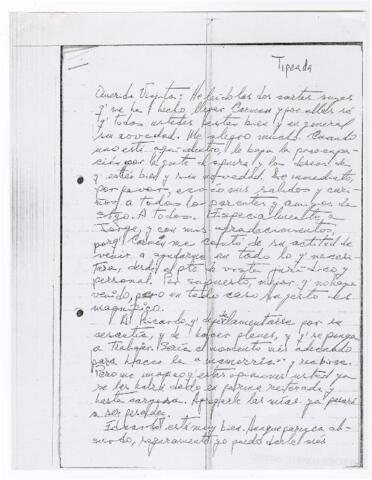 Tipeada
Querida Viejita: He leído las dos cartas suyas
q' me ha hecho llegar Carmen y por ellas sé
q' todos ustedes están bien y en general
sin novedad. Me alegro mucho. Cuando
uno está aquí dentro, le baja la preocupa-
ción por la gente de afuera y los deseos de
q' estén bien y sin novedad.
por favor, envíe mis saludos y cari-
ños a todos los parientes y amigos de
Stgo. A todos. Especialmente, a
Jorge, y con mis agradecimientos,
porq' Carmen me contó de su actitud de
venir a ayudarme en todo lo q' necesi-
tara, desde el pto. de vista jurídico y
personal. Por supuesto, mejor q' no haya
venido, pero en todo caso su gesto es
magnífico.
A Ricardo, q' por su
cesantía, y a hacer planes, y q' se ponga
a trabajar. Sería el momento más adecuado
para hacer la
Pero me imagino q' estas opiniones usted ya
se las habrá dado en forma reiterada y
hasta cargosa. ya pasará
a ser
Eduardo está muy bien. Aunque parezca ab-
surdo, seguramente yo puedo verle más